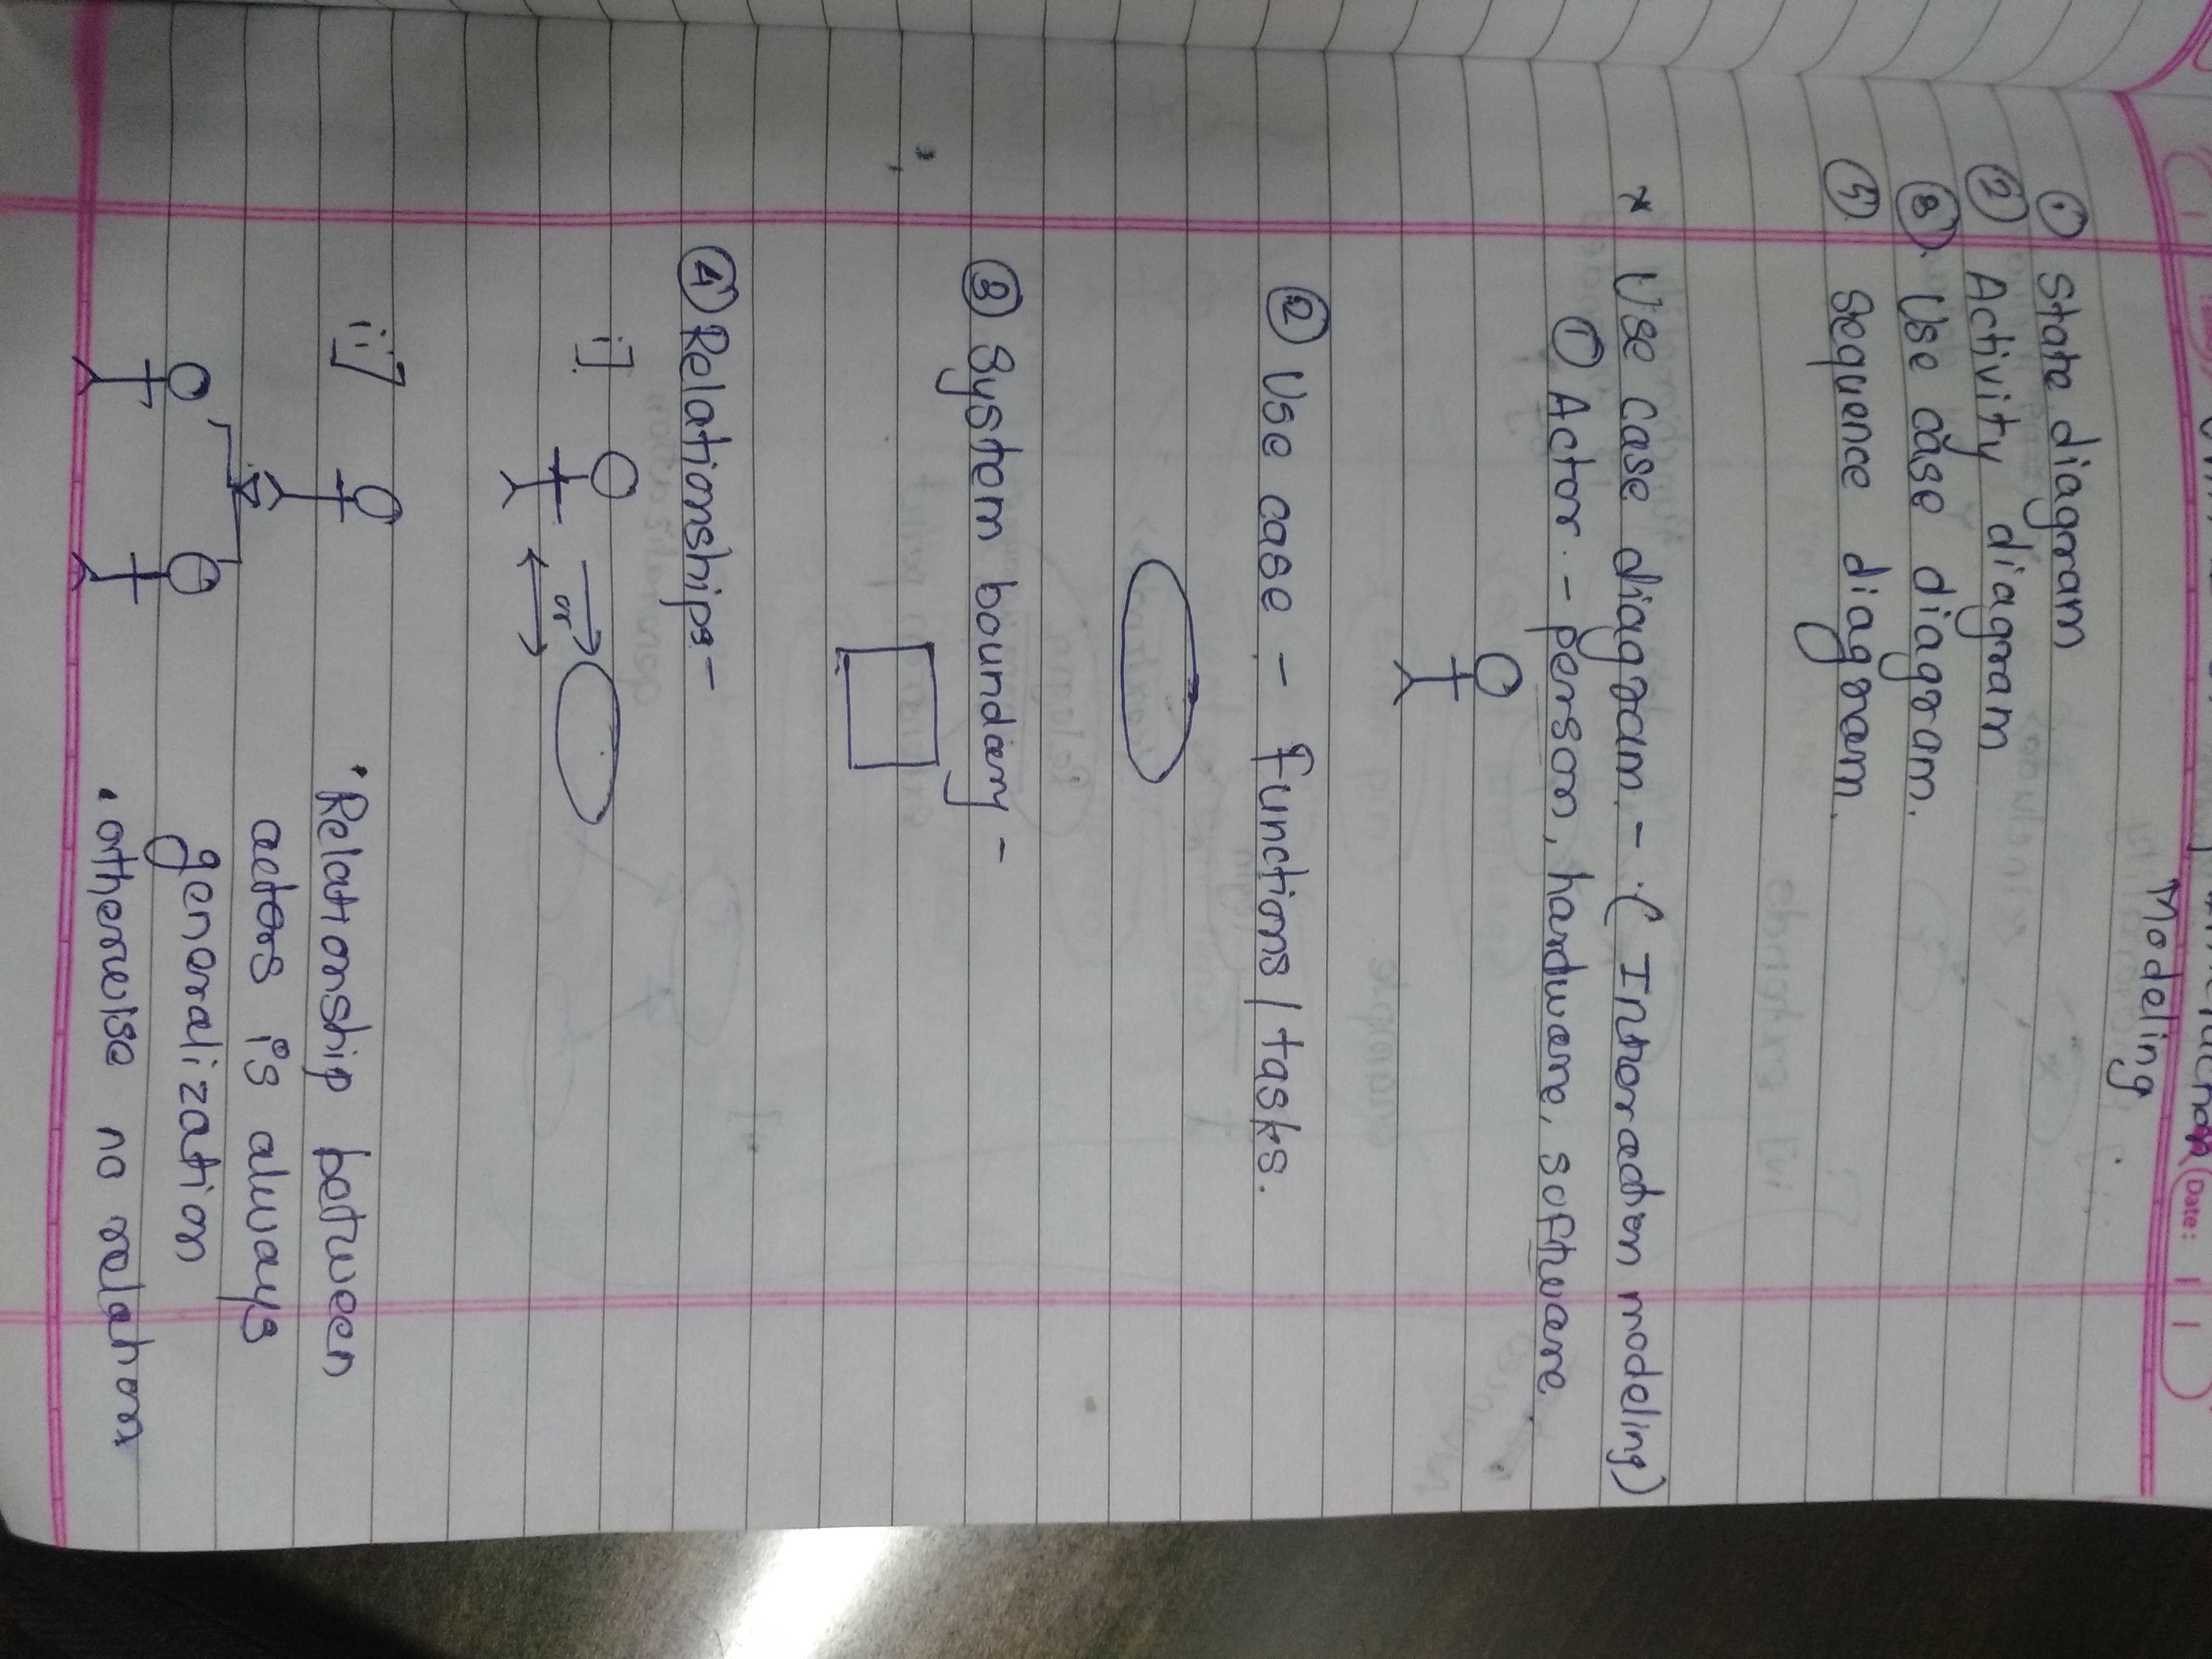 Date:
Modeling
① State diagram
② Activity diagram
③ Use case diagram.
Sequence diagram.
* Use case diagram. - ( Interaction modeling)
① Actor. - person, hardware, software.
② Use case - Functions / tasks.
③ System boundary -
④ Relationships -
i]
or
ii]
• Relationship between
actors is always
generalization
• otherwise no relation